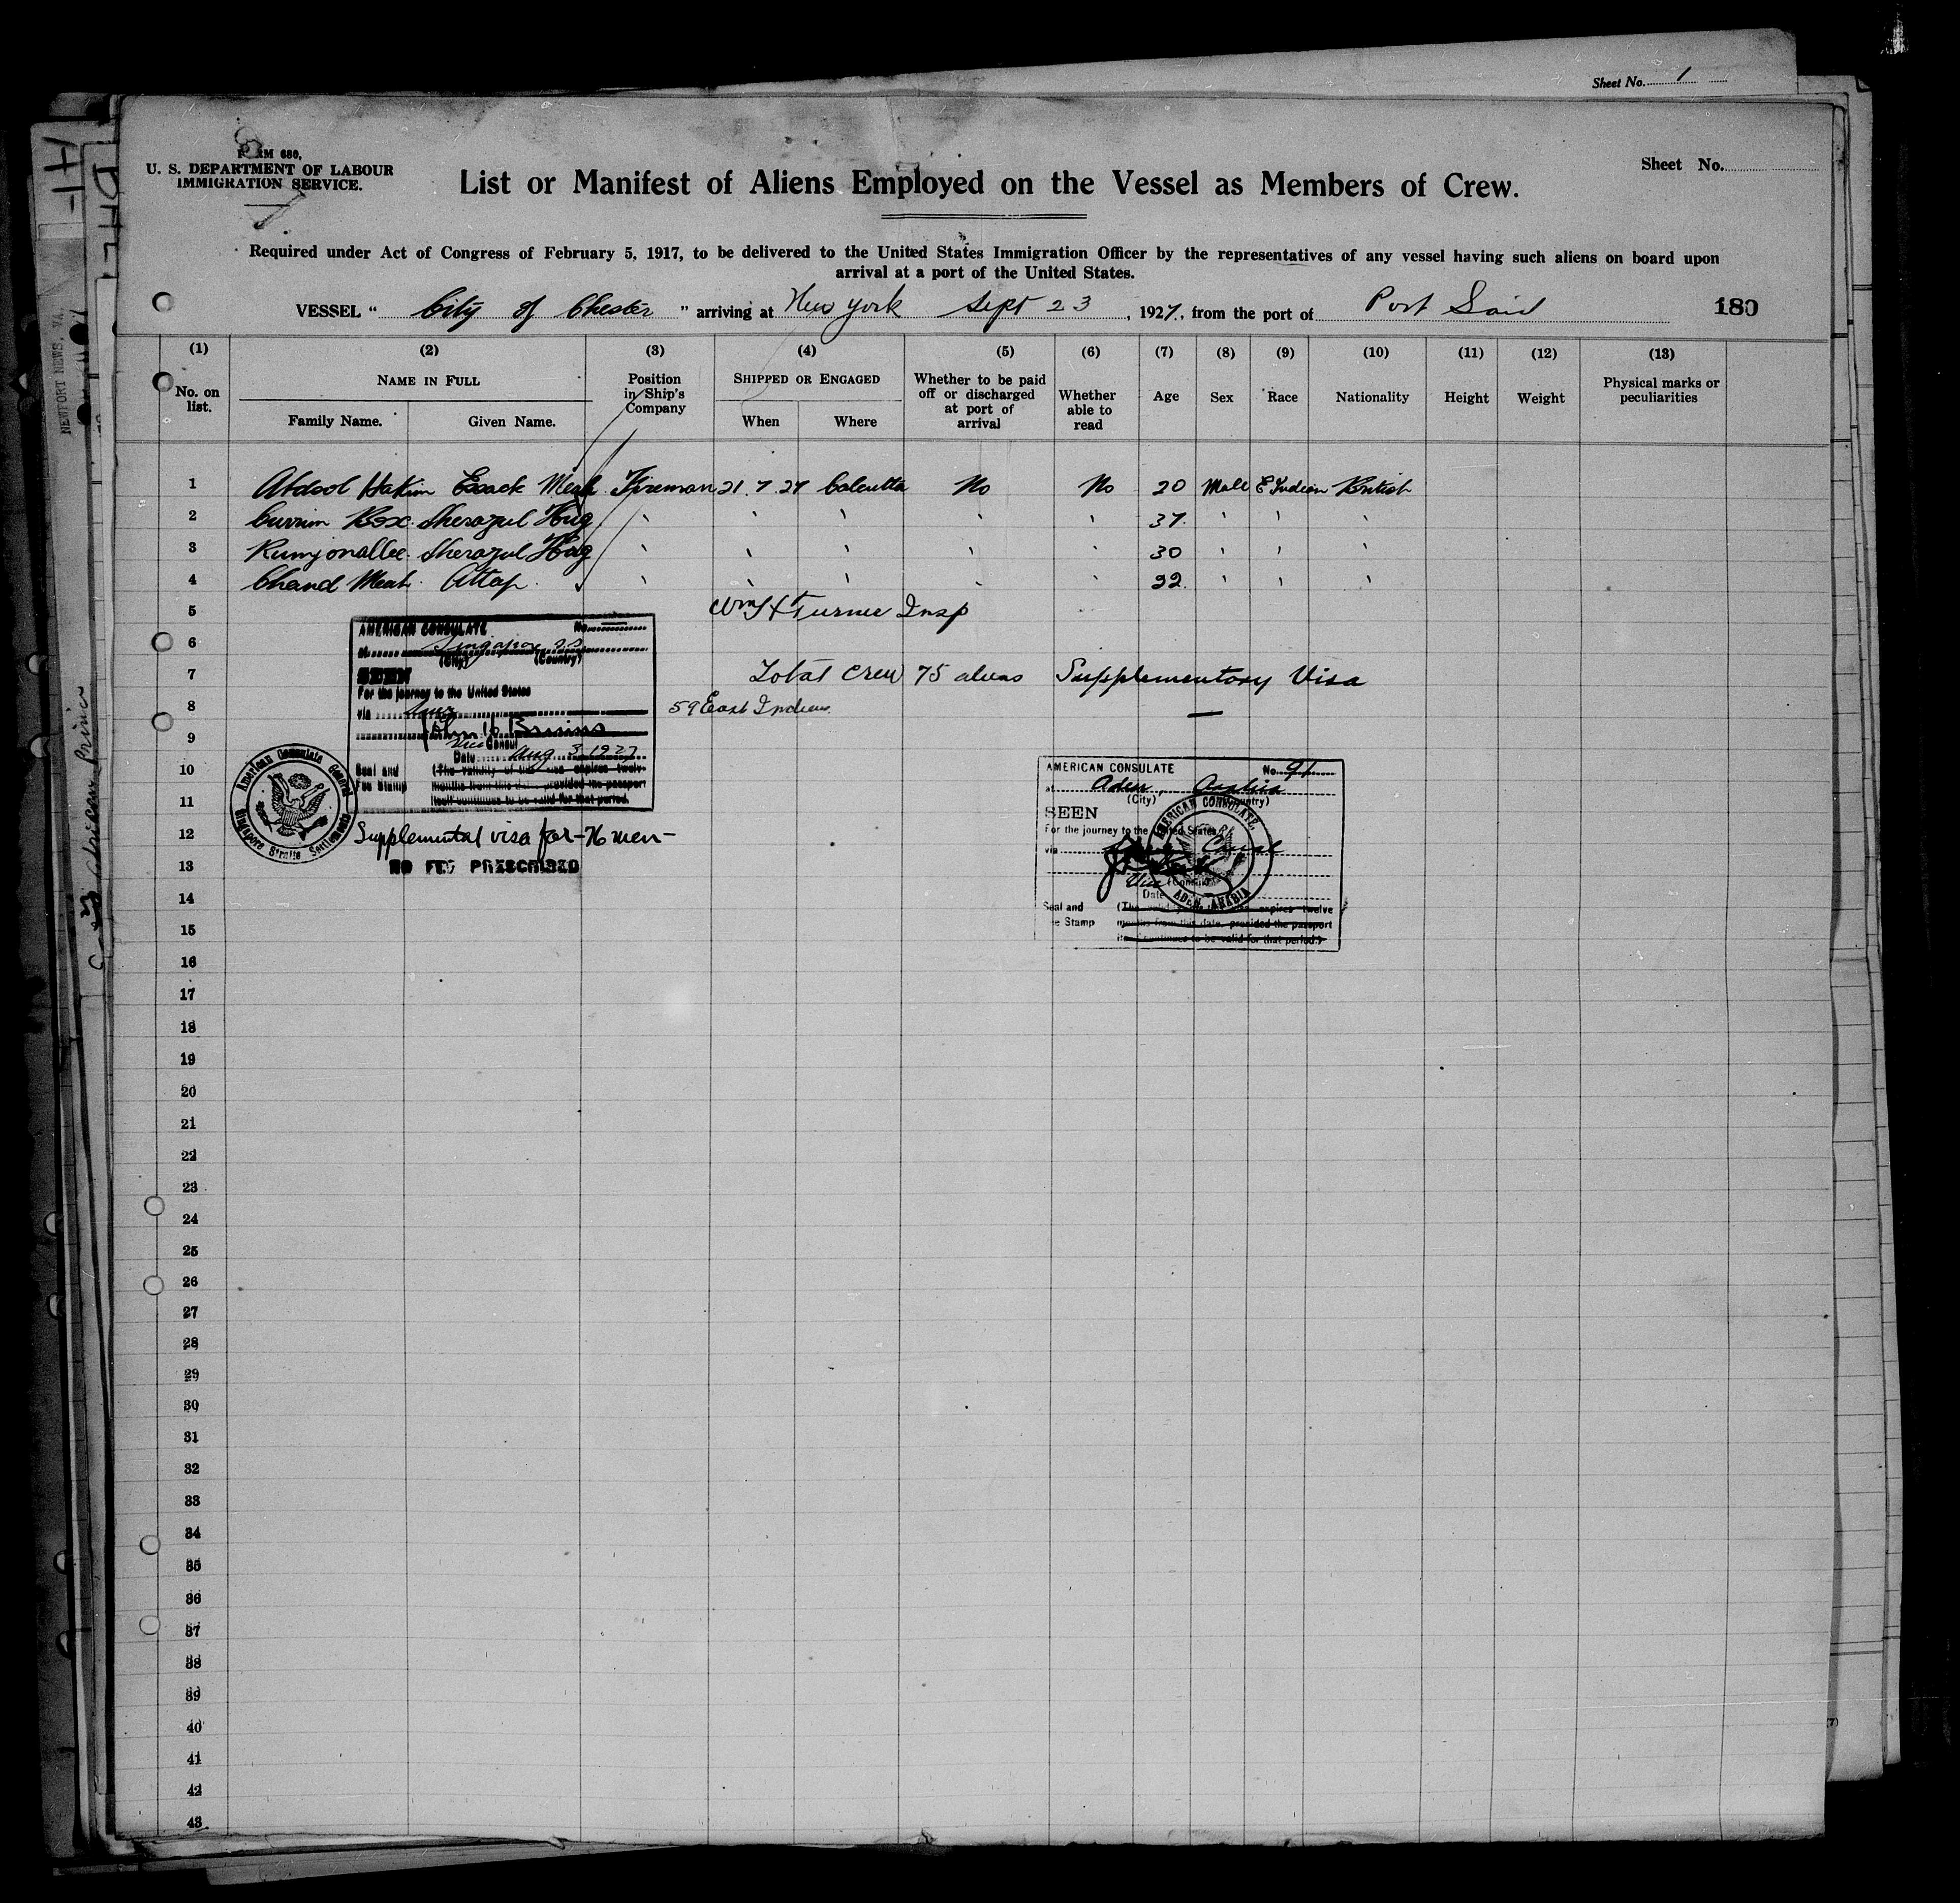 Sheet No. 1
FORM 680,
U. S. DEPARTMENT OF LABOUR
IMMIGRATION SERVICE.
Sheet No.
List or Manifest of Aliens Employed on the Vessel as Members of Crew.
Required under Act of Congress of February 5, 1917, to be delivered to the United States Immigration Officer by the representatives of any vessel having such aliens on board upon
arrival at a port of the United States.
VESSEL " City of Chester " arriving at New York Sept 23, 1927, from the port of Port Said 180
(1) (2) (3) (4) (5) (6) (7) (8) (9) (10) (11) (12) (13)
No. on list. NAME IN FULL Position in Ship's Company SHIPPED OR ENGAGED Whether to be paid off or discharged at port of arrival Whether able to read Age Sex Race Nationality Height Weight Physical marks or peculiarities
Family Name. Given Name. When Where
1 Abdool Hakim Esack Meah Fireman 21.7.27 Calcutta No No 20 Male E Indian British
2 Currim Box. Sherazul Hug ' ' ' ' ' 37. ' ' '
3 Rumjonallee. Sherazul Hug ' ' ' ' ' 30 ' ' '
4 Chand Meah. Attap. ' ' ' ' ' 22. ' ' '
5 Wm H Turner Insp
6
7 Total Crew 75 aliens Supplementary Visa
8 59 East Indians
9
10
11
12
13
14
15
16
17
18
19
20
21
22
23
24
25
26
27
28
29
30
31
32
33
34
35
36
37
38
39
40
41
42
43
AMERICAN CONSULATE No.
at Singapore S.S.
(City) (Country)
SEEN
For the journey to the United States
via Suez
Vice Consul
Date Aug 3 1927
Seal and (The validity of this visa expires twelve
Fee Stamp months from this date provided the passport
itself continues to be valid for that period.
American Consulate General
Singapore Straits Settlements
Supplemental visa for -76 men-
NO FEE PRESCRIBED
AMERICAN CONSULATE No. 91
at Aden, Arabia
(City) (Country)
SEEN
For the journey to the United States
via Canal
Vice (Consul)
Date
Seal and (The validity expires twelve
Fee Stamp months from this date, provided the passport
itself continues to be valid for that period.)
AMERICAN CONSULATE,
ADEN, ARABIA
NEWPORT NEWS, VA.